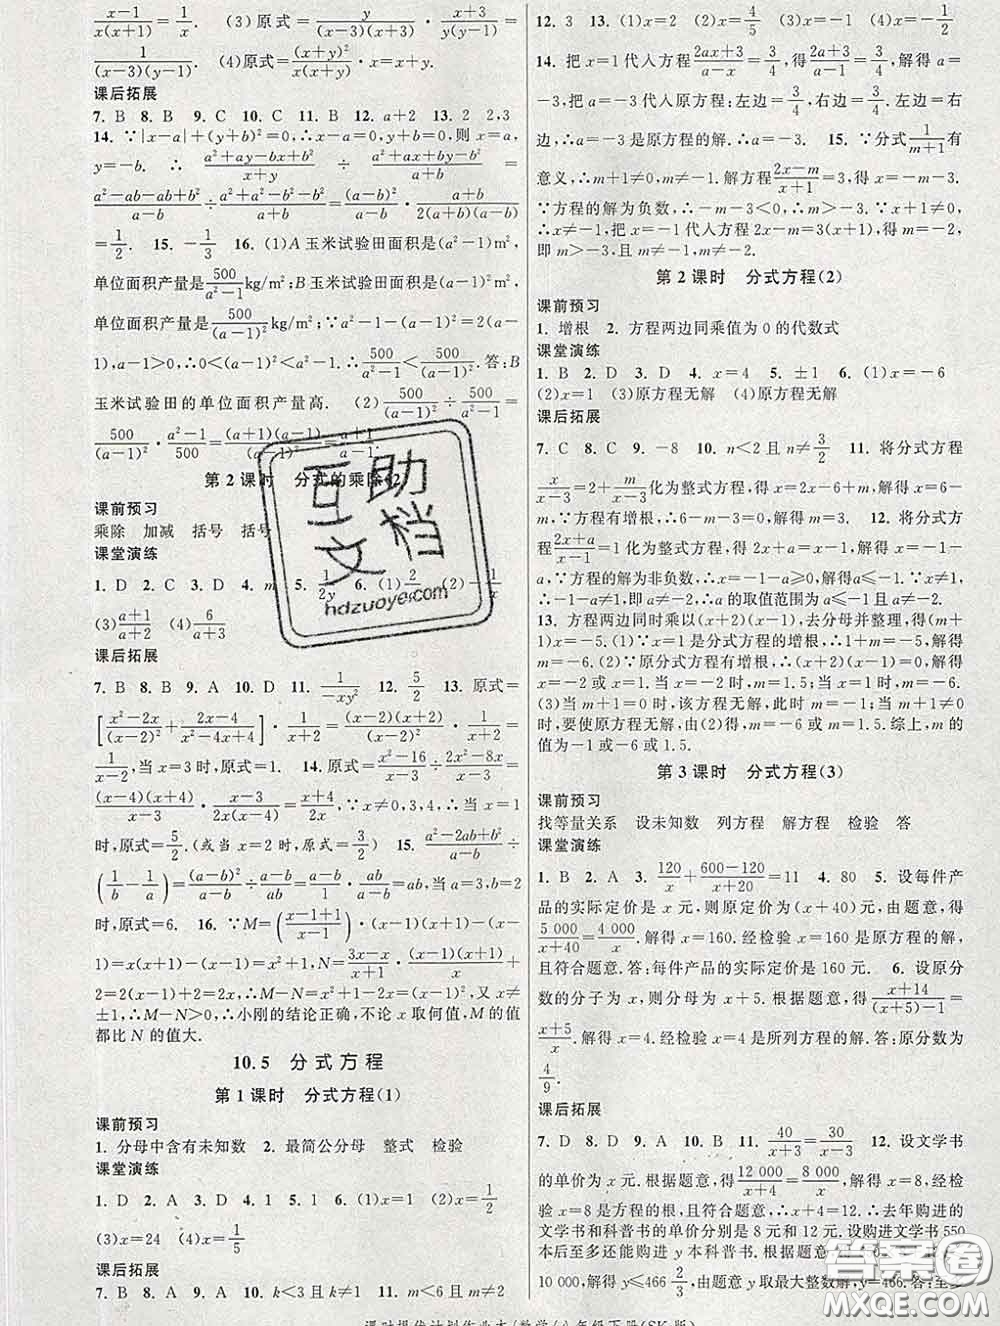 $\frac{x-1}{x(x+1)}=\frac{1}{x}$. (3)原式=$\frac{y}{(x-3)(x+3)}$·$\frac{x+3}{y(y-1)}$=
$\frac{1}{(x-3)(y-1)}$. (4)原式=$\frac{(x+y)^2}{x(x+y)}$·x=x+y.
课后拓展
7. B 8. B 9. C 10. C 11. B 12. a+2 13. 2 2,3
14. ∵|x-a|+(y+b)²=0,∴x-a=0,y+b=0,则 x=a,
y=-b. ∴ $\frac{a^2+ay-bx+b^2}{x+y}$ ÷ $\frac{a^2+ax+by-b^2}{a+b}$ =
$\frac{a^2-ab-ab+b^2}{a-b}$÷$\frac{a^2+a^2-b^2-b^2}{a+b}$=$\frac{(a-b)^2}{a-b}$·$\frac{a+b}{2(a+b)(a-b)}$
=$\frac{1}{2}$. 15. $-\frac{1}{3}$ 16. (1)A 玉米试验田面积是(a²-1)m²,
单位面积产量是$\frac{500}{a^2-1}$kg/m²;B玉米试验田面积是(a-1)²m²,
单位面积产量是$\frac{500}{(a-1)^2}$kg/m²;∵a²-1-(a-1)²=2(a-
1),a-1>0,∴0<(a-1)²<a²-1.∴$\frac{500}{a^2-1}$<$\frac{500}{(a-1)^2}$.答:B
玉米试验田的单位面积产量高. (2)$\frac{500}{(a-1)^2}$÷$\frac{500}{a^2-1}$=
$\frac{500}{(a-1)^2}$·$\frac{a^2-1}{500}$=$\frac{(a+1)(a-1)}{(a-1)^2}$=$\frac{a+1}{a-1}$.
第 2 课时 分式的乘除(2)
课前预习
乘除 加减 括号 括号
课堂演练
1. D 2. C 3. D 4. m 5. $\frac{1}{2y}$ 6. (1)$\frac{2}{x}$ (2)$-\frac{1}{x}$
(3)$\frac{a+1}{a+2}$ (4)$\frac{6}{a+3}$
课后拓展
7. B 8. B 9. A 10. D 11. $\frac{1}{-xy^2}$ 12. $\frac{5}{2}$ 13. 原式=
[$\frac{x^2-2x}{(x-2)^2}$+$\frac{2x-4}{x^2-4x+4}$]·$\frac{1}{x+2}$=$\frac{(x-2)(x+2)}{(x-2)^2}$·$\frac{1}{x+2}$=
$\frac{1}{x-2}$,当 x=3时,原式=1. 14. 原式=$\frac{x^2-16}{x-3}$÷$\frac{2x^2-8x}{x-3}$=
$\frac{(x-4)(x+4)}{x-3}$·$\frac{x-3}{2x(x-4)}$=$\frac{x+4}{2x}$,∵x≠0,3,4,∴当x=1
时,原式=$\frac{5}{2}$.(或当 x=2 时,原式=$\frac{3}{2}$) 15. $\frac{a^2-2ab+b^2}{a-b}$÷
($\frac{1}{b}$-$\frac{1}{a}$)=$\frac{(a-b)^2}{a-b}$÷$\frac{a-b}{ab}$=$\frac{(a-b)^2}{a-b}$·$\frac{ab}{a-b}$=ab,当 a=3,b=2
时,原式=6. 16. ∵M=($\frac{x-1+1}{x-1}$)·(x-1)(x+1)-(x-1)
=x(x+1)-(x-1)=x²+1,N=$\frac{3x-x}{x+1}$·$\frac{(x-1)(x+1)}{x}$+
2=2(x-1)+2=2x,∴M-N=x²+1-2x=(x-1)²,又 x≠
±1,∴M-N>0,∴小刚的结论正确,不论 x 取何值,M 的值
都比 N 的值大.
10.5 分 式 方 程
第 1 课时 分式方程(1)
课前预习
1. 分母中含有未知数 2. 最简公分母 整式 检验
课堂演练
1. D 2. A 3. D 4. A 5. 1 6. (1)x=1 (2)x=$\frac{1}{2}$
(3)x=24 (4)x=$\frac{1}{5}$
课后拓展
7. B 8. A 9. A 10. k<3 且 k≠1 11. m<6 且 m≠2
12. 3 13. (1)x=2 (2)x=$\frac{4}{5}$ (3)x=2 (4)x=$-\frac{1}{2}$
14. 把 x=1代入方程$\frac{2ax+3}{a-x}$=$\frac{3}{4}$,得$\frac{2a+3}{a-1}$=$\frac{3}{4}$,解得 a=
-3,把 a=-3代入原方程:左边=$\frac{3}{4}$,右边=$\frac{3}{4}$,左边=右
边,∴a=-3是原方程的解,∴a=-3. 15. ∵分式$\frac{1}{m+1}$有
意义,∴m+1≠0,m≠-1.解方程$\frac{2x-m}{x+1}$=3,得 x=-m-3.
∵方程的解为负数,∴-m-3<0,∴m>-3.∵x+1≠0,
∴x≠-1,把 x=-1 代入方程 2x-m=3(x+1),得 m=-2,
即 m>-3,且 m≠-1,m≠-2.
第 2 课时 分式方程(2)
课前预习
1. 增根 2. 方程两边同乘值为 0 的代数式
课堂演练
1. B 2. D 3. D 4. x=4 5. ±1 6. (1)x=-6
(2)x=1 (3)原方程无解 (4)原方程无解
课后拓展
7. C 8. C 9. -8 10. n<2 且 n≠$\frac{3}{2}$ 11. 将分式方程
$\frac{x}{x-3}$=2+$\frac{m}{x-3}$化为整式方程,得 x=2x-6+m,解得 x=6-
m,∵方程有增根,∴6-m-3=0,解得 m=3. 12. 将分式方
程$\frac{2x+a}{x-1}$=1化为整式方程,得 2x+a=x-1,解得 x=-1-
a,∵方程的解为非负数,∴x=-1-a≥0,解得a≤-1.∵x≠
1,∴-1-a≠1,解得 a≠-2,∴a 的取值范围为 a≤-1 且 a≠-2.
13. 方程两边同时乘以(x+2)(x-1),去分母并整理,得(m+
1)x=-5.(1)∵x=1是分式方程的增根,∴1+m=-5,解得
m=-6.(2)∵原分式方程有增根,∴(x+2)(x-1)=0,解得
x=-2 或 x=1.当 x=-2 时,m=1.5;当 x=1 时,m=-6.
(3)当 m+1=0 时,该方程无解,此时 m=-1;当 m+1≠0
时,要使原方程无解,由(2)得,m=-6 或 m=1.5.综上,m 的
值为-1 或-6 或 1.5.
第 3 课时 分式方程(3)
课前预习
找等量关系 设未知数 列方程 解方程 检验 答
课堂演练
1. B 2. A 3. $\frac{120}{x}$+$\frac{600-120}{x+20}$=11 4. 80 5. 设每件产
品的实际定价是 x 元,则原定价为(x+40)元,由题意,得
$\frac{5\,000}{x+40}$=$\frac{4\,000}{x}$.解得 x=160.经检验 x=160 是原方程的解,
且符合题意.答:每件产品的实际定价是 160 元. 6. 设原分
数的分子为 x,则分母为 x+5.根据题意,得$\frac{x+14}{(x+5)-1}$=
$\frac{x+5}{x}$.解得 x=4.经检验 x=4是所列方程的解.答:分数为
$\frac{4}{9}$.
课后拓展
7. D 8. A 9. B 10. B 11. $\frac{40}{x+3}$=$\frac{30}{x-3}$ 12. 设文学书
的单价为 x 元.根据题意,得$\frac{12\,000}{x+4}$=$\frac{8\,000}{x}$.解得 x=8,经检
验 x=8 是方程的解,且符合题意,∴x+4=12.∴去年购进的
文学书和科普书的单价分别是 8 元和 12 元.设购进文学书 550
本后至多还能购进 y 本科普书.
10 000,解得 y≤466$\frac{2}{3}$,由题意 y 取最大整数解,y=466.答:至多
课时提优计划作业本/数学/八年级下册(SK版)
互助文档
hdzuoye.com
答案圈
MXQE.COM